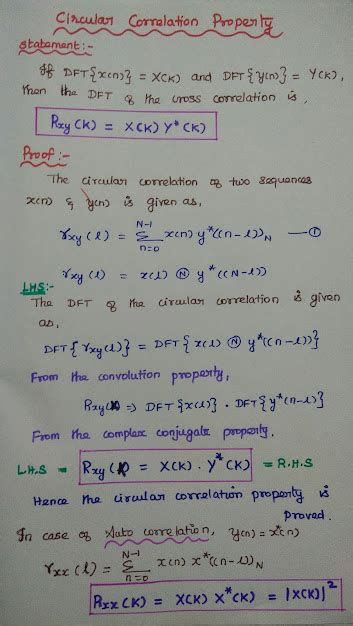 Circular Correlation Property
Statement:-
If DFT{x(n)} = X(K) and DFT{y(n)} = Y(K),
then the DFT of the cross correlation is,
Rxy(K) = X(K) Y*(K)
Proof:-
The circular correlation of two sequences
x(n) & y(n) is given as,
N-1
rxy(l) = Σ x(n) y*((n-l))N —①
n=0
rxy(l) = x(l) Ⓝ y*((N-l))
LHS:-
The DFT of the circular correlation is given
as,
DFT{rxy(l)} = DFT{x(l) Ⓝ y*((n-l))}
From the convolution property,
Rxy(K) => DFT{x(l)} . DFT{y*(n-l)}
From the complex conjugate property.
L.H.S = Rxy(K) = X(K) . Y*(K) = R.H.S
Hence the circular correlation property is
Proved.
In case of Auto correlation, y(n) = x*(n)
N-1
rxx(l) = Σ x(n) x*((n-l))N
n=0
Rxx(K) = X(K) X*(K) = |X(K)|²